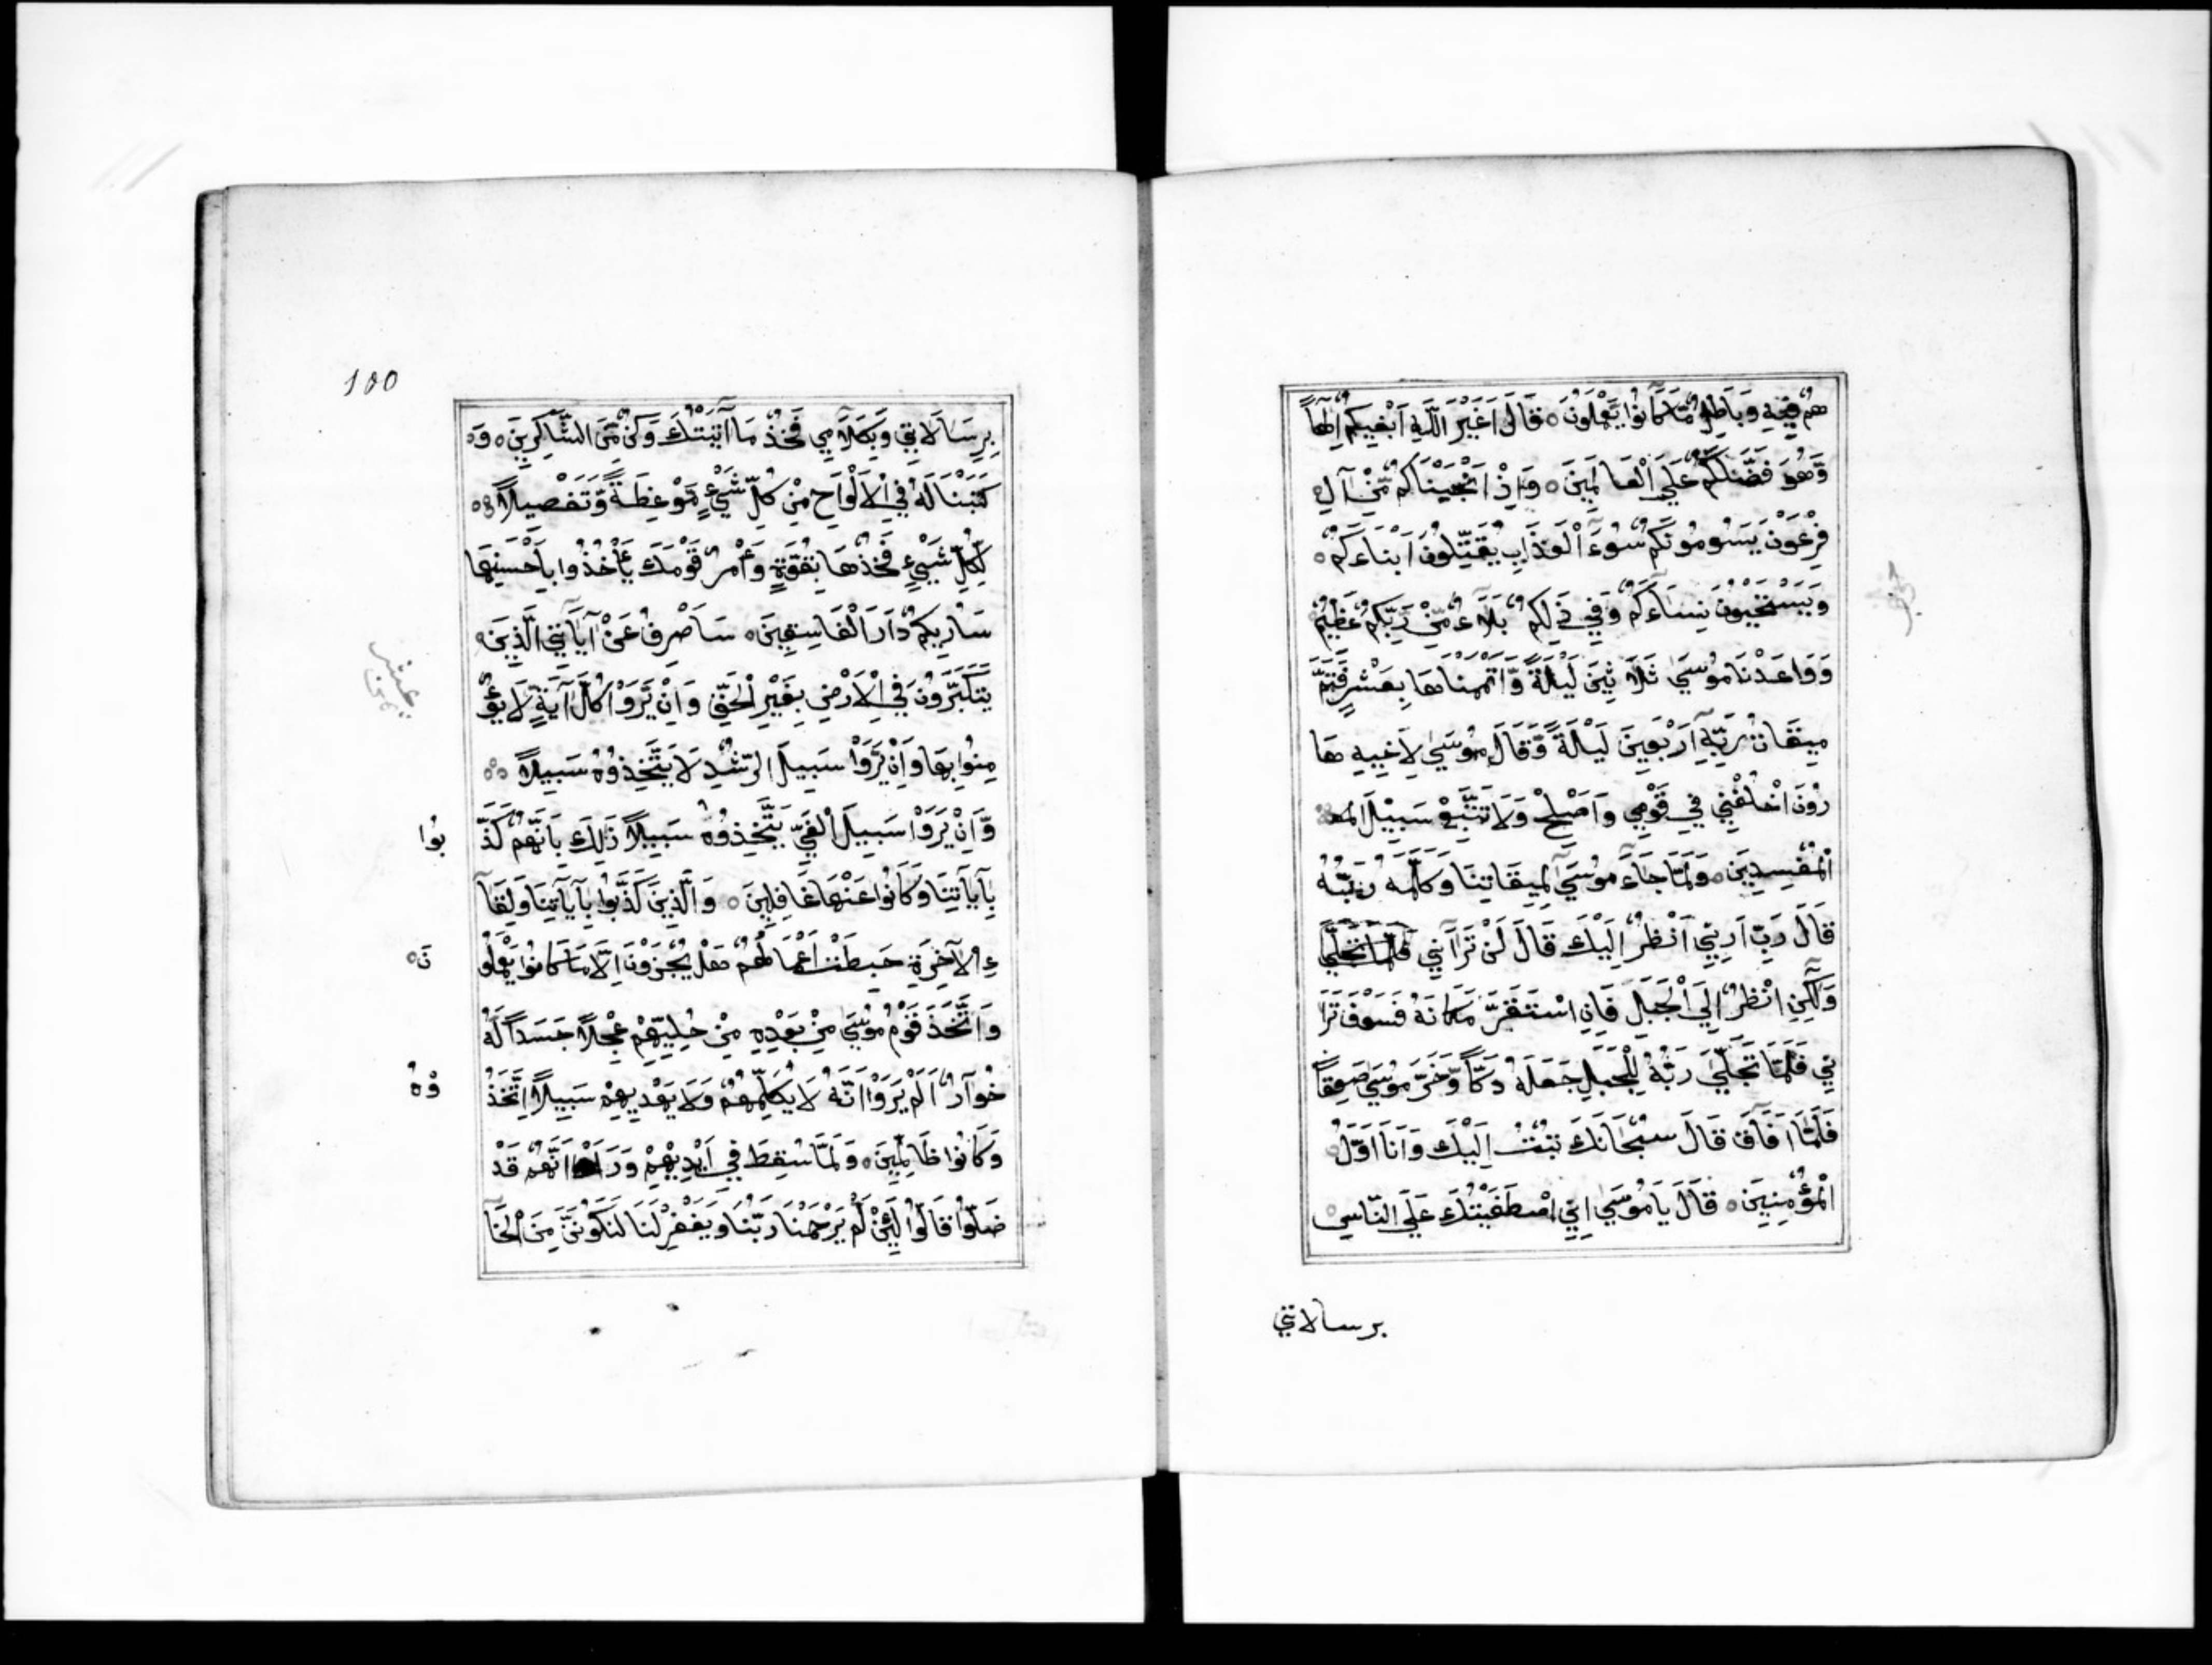 هُمْ فِيهِ وَبَاطِلٌ مَّا كَانُوا يَعْمَلُونَ ۝ قَالَ اَغَيْرَ اللّٰهِ اَبْغِيكُمْ اِلٰهاً
وَّهُوَ فَضَّلَكُمْ عَلَي الْعَالَمِينَ ۝ وَاِذْ اَنْجَيْنَاكُمْ مِّنْ آلِ
فِرْعَوْنَ يَسُومُونَكُمْ سُوءَ الْعَذَابِ يُقَتِّلُونَ اَبْنَاءَكُمْ
وَيَسْتَحْيُونَ نِسَاءَكُمْ وَفِي ذٰلِكُمْ بَلَآءٌ مِّنْ رَّبِّكُمْ عَظِيمٌ
وَوَاعَدْنَا مُوسَيٰ ثَلَاثِينَ لَيْلَةً وَّاَتْمَمْنَاهَا بِعَشْرٍ فَتَمَّ
مِيقَاتُ رَبِّهِ اَرْبَعِينَ لَيْلَةً وَّقَالَ مُوسَيٰ لِاَخِيهِ هَا
رُونَ اخْلُفْنِي فِي قَوْمِي وَاَصْلِحْ وَلَا تَتَّبِعْ سَبِيْلَ المـ
الْمُفْسِدِينَ ۝ وَلَمَّا جَاءَ مُوسَيٰ لِمِيقَاتِنَا وَكَلَّمَهُ رَبُّهُ
قَالَ رَبِّ اَرِنِي اَنْظُرْ اِلَيْكَ قَالَ لَنْ تَرَانِي فَلَمَّا تَجَلَّي
وَلٰكِنِ انْظُرْ اِلَي الْجَبَلِ فَاِنِ اسْتَقَرَّ مَكَانَهُ فَسَوْفَ تَرَا
نِي فَلَمَّا تَجَلَّيٰ رَبُّهُ لِلْجَبَلِ جَعَلَهُ دَكّاً وَّخَرَّ مُوسَيٰ صَعِقاً
فَلَمَّا اَفَاقَ قَالَ سُبْحَانَكَ تُبْتُ اِلَيْكَ وَاَنَا اَوَّلُ
الْمُؤْمِنِينَ ۝ قَالَ يَا مُوسَيٰ اِنِّي اصْطَفَيْتُكَ عَلَي النَّاسِ
برسالاتي
100
بِرِسَالَاتِي وَبِكَلَامِي فَخُذْ مَا آتَيْتُكَ وَكُنْ مِّنَ الشَّاكِرِينَ ۝ وَ
كَتَبْنَا لَهُ فِي الْاَلْوَاحِ مِنْ كُلِّ شَيْءٍ مَّوْعِظَةً وَّتَفْصِيلاً
لِّكُلِّ شَيْءٍ فَخُذْهَا بِقُوَّةٍ وَّأْمُرْ قَوْمَكَ يَأْخُذُوا بِاَحْسَنِهَا
سَاُرِيكُمْ دَارَ الْفَاسِقِينَ ۝ سَاَصْرِفُ عَنْ آيَاتِيَ الَّذِينَ
يَتَكَبَّرُونَ فِي الْاَرْضِ بِغَيْرِ الْحَقِّ وَاِنْ يَّرَوْا كُلَّ آيَةٍ لَا يُؤْ
مِنُوا بِهَا وَاِنْ يَّرَوْا سَبِيلَ الرُّشْدِ لَا يَتَّخِذُوهُ سَبِيلاً
وَّاِنْ يَّرَوْا سَبِيلَ الْغَيِّ يَتَّخِذُوهُ سَبِيلاً ذٰلِكَ بِاَنَّهُمْ كَذَّ
بُوا
بِآيَاتِنَا وَكَانُوا عَنْهَا غَافِلِينَ ۝ وَالَّذِينَ كَذَّبُوا بِآيَاتِنَا وَلِقَآ
ءِ الْآخِرَةِ حَبِطَتْ اَعْمَالُهُمْ هَلْ يُجْزَوْنَ اِلَّا مَا كَانُوا يَعْمَلُو
نَ ۝
وَاتَّخَذَ قَوْمُ مُوسَيٰ مِنْ بَعْدِهِ مِنْ حُلِيِّهِمْ عِجْلاً جَسَداً لَّهُ
خُوَارٌ اَلَمْ يَرَوْا اَنَّهُ لَا يُكَلِّمُهُمْ وَلَا يَهْدِيهِمْ سَبِيلاً اِتَّخَذُ
وْهُ
وَكَانُوا ظَالِمِينَ ۝ وَلَمَّا سُقِطَ فِي اَيْدِيهِمْ وَرَاَوْا اَنَّهُمْ قَدْ
ضَلُّوا قَالُوا لَئِنْ لَّمْ يَرْحَمْنَا رَبُّنَا وَيَغْفِرْ لَنَا لَنَكُونَنَّ مِنَ الْخَا